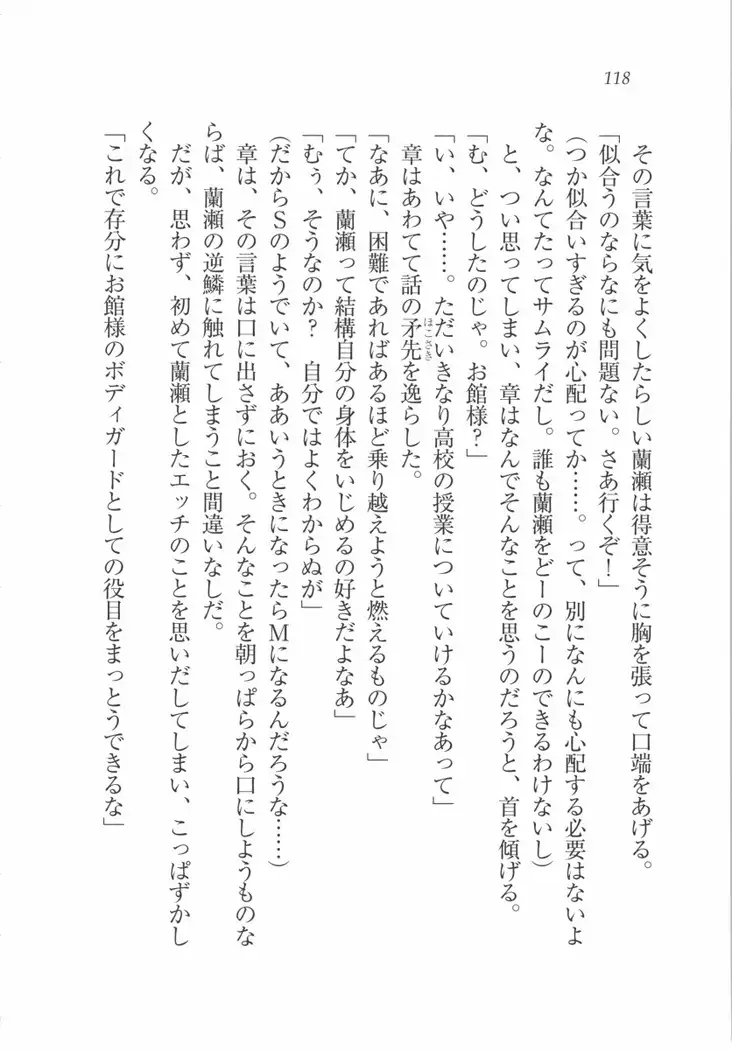 118
その言葉に気をよくしたらしい蘭瀬は得意そうに胸を張って口端をあげる。
「似合うのならなにも問題ない。さあ行くぞ！」
（つか似合いすぎるのが心配ってか……。って、別になんにも心配する必要はないよ
な。なんてたってサムライだし。誰も蘭瀬をどーのこーのできるわけないし）
と、つい思ってしまい、章はなんでそんなことを思うのだろうと、首を傾げる。
「む、どうしたのじゃ。お館様？」
「い、いや……。ただいきなり高校の授業についていけるかなあって」
章はあわてて話の矛先ほこさきを逸らした。
「なあに、困難であればあるほど乗り越えようと燃えるものじゃ」
「てか、蘭瀬って結構自分の身体をいじめるの好きだよなあ」
「むぅ、そうなのか？　自分ではよくわからぬが」
（だからＳのようでいて、ああいうときになったらＭになるんだろうな……）
章は、その言葉は口に出さずにおく。そんなことを朝っぱらから口にしようものな
らば、蘭瀬の逆鱗に触れてしまうこと間違いなしだ。
だが、思わず、初めて蘭瀬としたエッチのことを思いだしてしまい、こっぱずかし
くなる。
「これで存分にお館様のボディガードとしての役目をまっとうできるな」